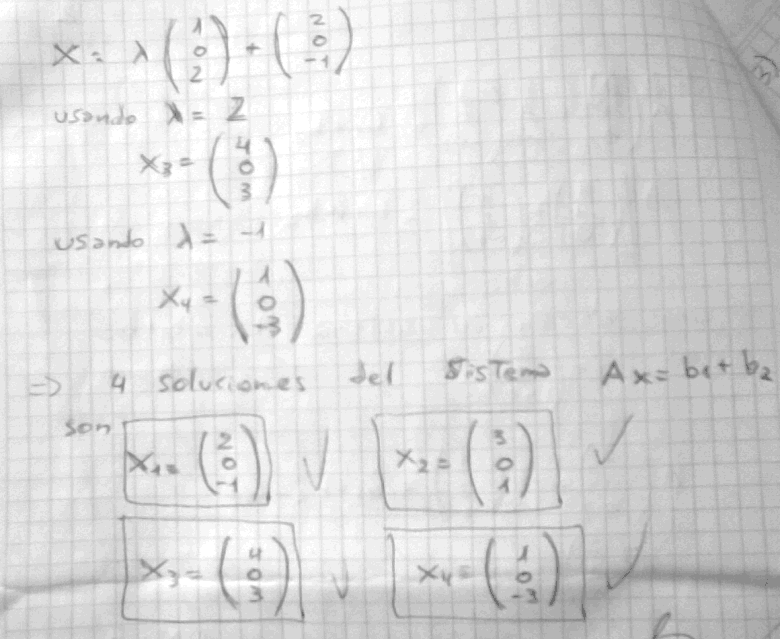 X = λ (1 0 2) + (2 0 -1)
usando λ = 2
X3 = (4 0 3)
usando λ = -1
X4 = (1 0 -3)
=> 4 soluciones del sistema Ax = b1 + b2
son
X1 = (2 0 -1) ✓ X2 = (3 0 1) ✓
X3 = (4 0 3) ✓ X4 = (1 0 -3) ✓